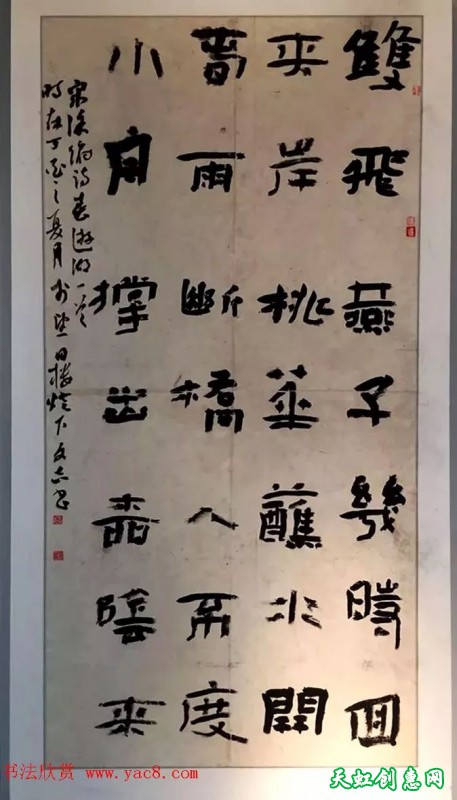 雙飛燕子幾時回
夾岸桃華蘸水開
春雨斷橋人不度
小舟撐出柳陰來
宋徐俯詩春遊湖一首
時在丁酉之夏月於日樓燈下
书法欣赏 www.yac8.com
天虹创意网